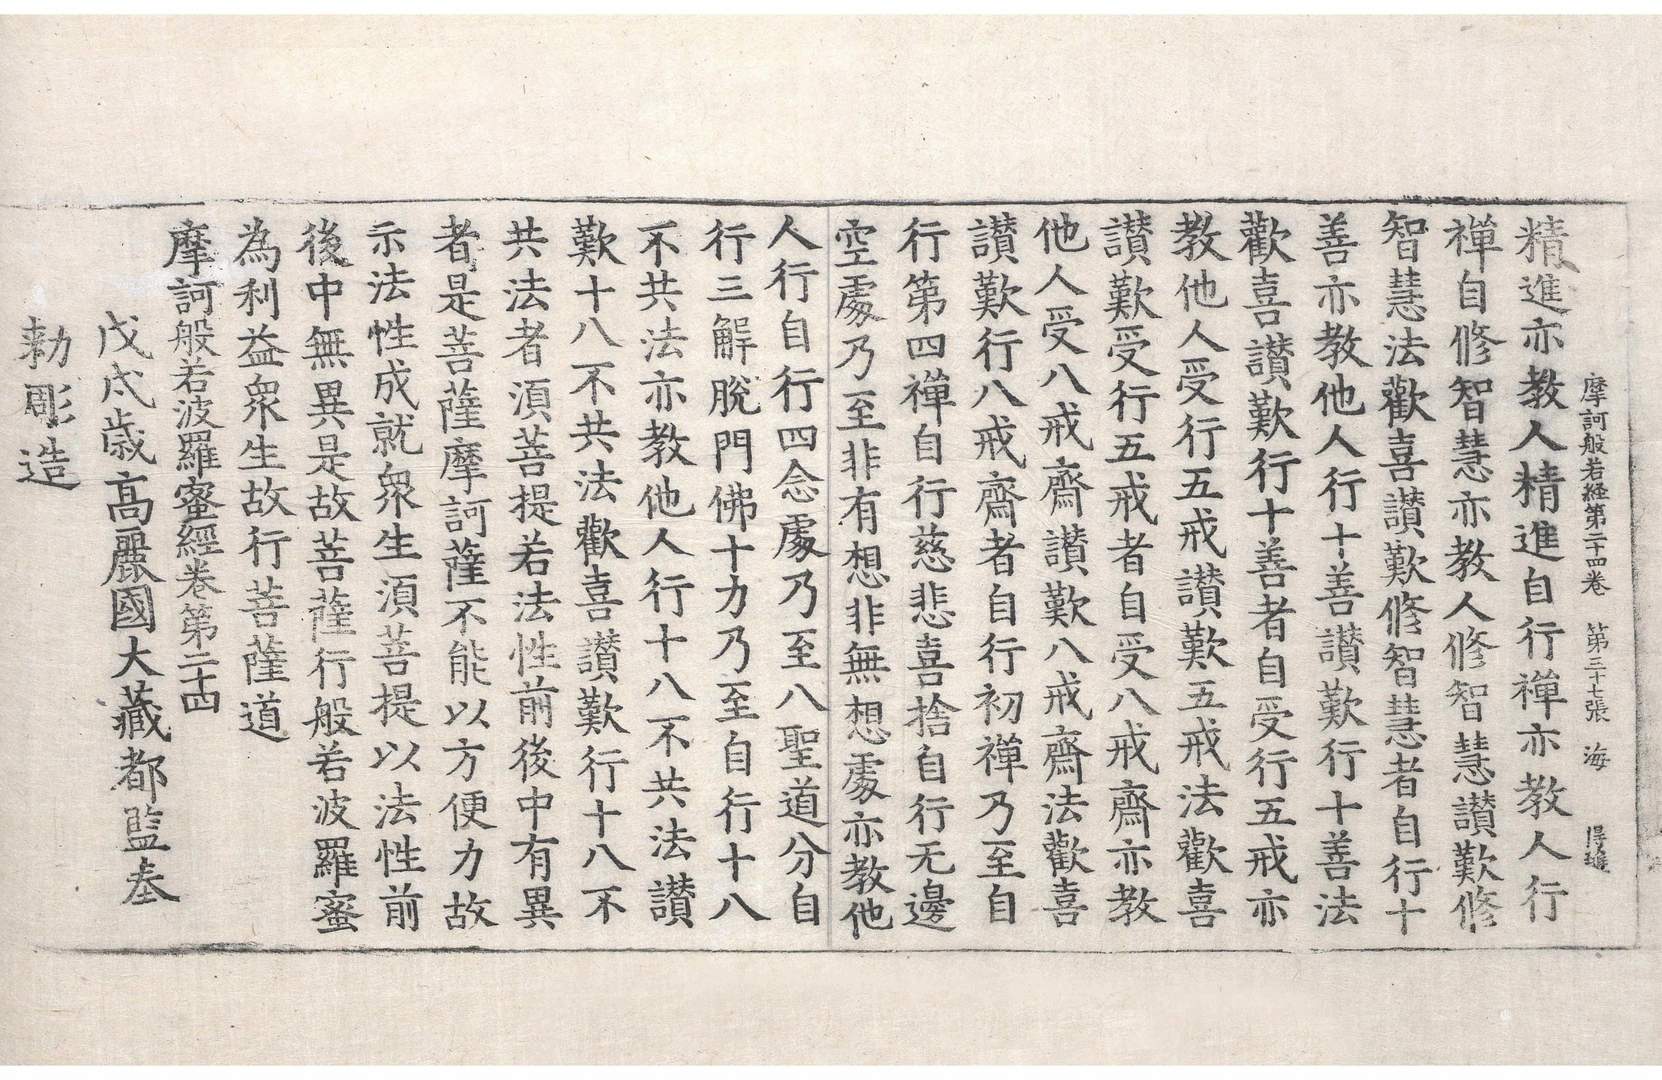 摩訶般若経第二十四卷 第三十七張 海 得璡
精進亦教人精進自行禪亦教人行
禪自修智慧亦教人修智慧讃歎修
智慧法歡喜讃歎修智慧者自行十
善亦教他人行十善讃歎行十善法
歡喜讃歎行十善者自受行五戒亦
教他人受行五戒讃歎五戒法歡喜
讃歎受行五戒者自受八戒齋亦教
他人受八戒齋讃歎八戒齋法歡喜
讃歎行八戒齋者自行初禪乃至自
行第四禪自行慈悲喜捨自行无邊
空處乃至非有想非無想處亦教他
人行自行四念處乃至八聖道分自
行三解脫門佛十力乃至自行十八
不共法亦教他人行十八不共法讃
歎十八不共法歡喜讃歎行十八不
共法者須菩提若法性前後中有異
者是菩薩摩訶薩不能以方便力故
示法性成就衆生須菩提以法性前
後中無異是故菩薩行般若波羅蜜
為利益衆生故行菩薩道
摩訶般若波羅蜜經卷第二十四
戊戌歲高麗國大藏都監奉
勅彫造